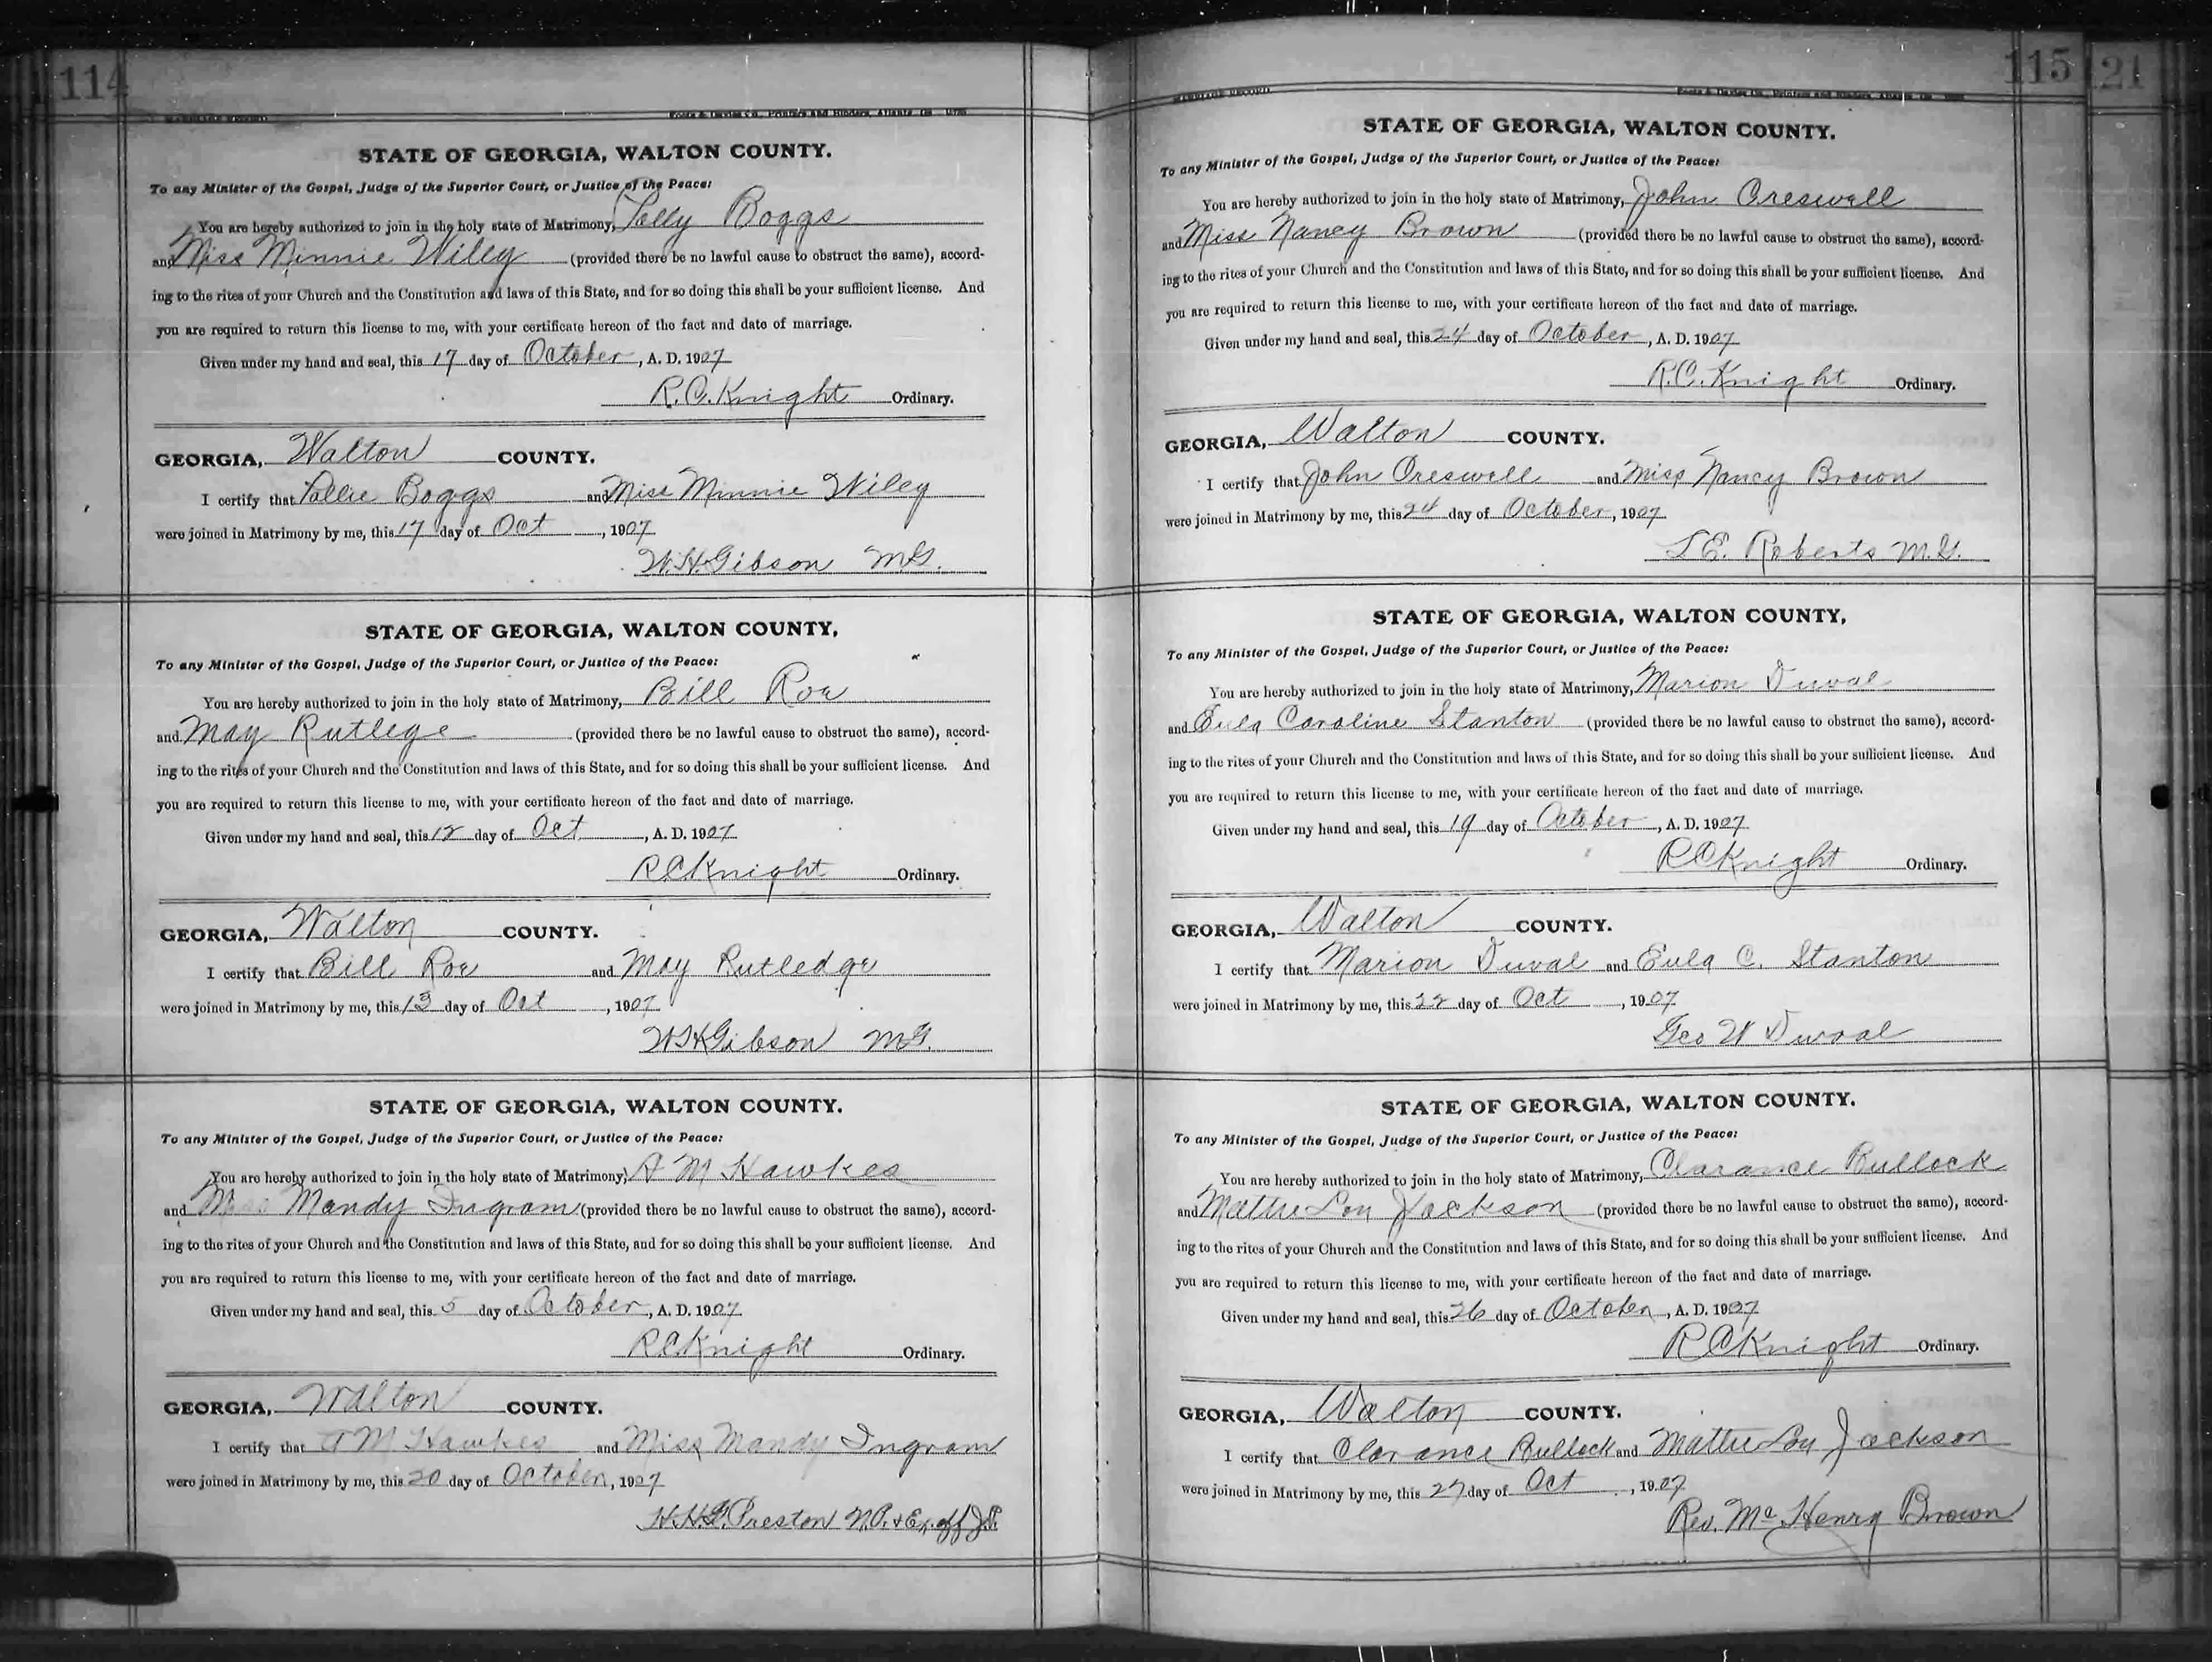 114
MARRIAGE RECORD
Foote & Davies Co., Printers and Binders, Atlanta, Ga.
STATE OF GEORGIA, WALTON COUNTY.
To any Minister of the Gospel, Judge of the Superior Court, or Justice of the Peace:
You are hereby authorized to join in the holy state of Matrimony, Boggs
and Miss Minnie Willy (provided there be no lawful cause to obstruct the same), accord-
ing to the rites of your Church and the Constitution and laws of this State, and for so doing this shall be your sufficient license. And
you are required to return this license to me, with your certificate hereon of the fact and date of marriage.
Given under my hand and seal, this 17 day of October, A. D. 1907
R.C. Knight Ordinary.
GEORGIA, Walton COUNTY.
I certify that Boggs and Miss Minnie Wiley
were joined in Matrimony by me, this 17 day of Oct, 1907
W.H. Gibson M.G.
STATE OF GEORGIA, WALTON COUNTY,
To any Minister of the Gospel, Judge of the Superior Court, or Justice of the Peace:
You are hereby authorized to join in the holy state of Matrimony, Bill Roe
and May Rutlege (provided there be no lawful cause to obstruct the same), accord-
ing to the rites of your Church and the Constitution and laws of this State, and for so doing this shall be your sufficient license. And
you are required to return this license to me, with your certificate hereon of the fact and date of marriage.
Given under my hand and seal, this 12 day of Oct, A. D. 1907
R C Knight Ordinary.
GEORGIA, Walton COUNTY.
I certify that Bill Roe and May Rutledge
were joined in Matrimony by me, this 13 day of Oct, 1907
W H Gibson M.G.
STATE OF GEORGIA, WALTON COUNTY.
To any Minister of the Gospel, Judge of the Superior Court, or Justice of the Peace:
You are hereby authorized to join in the holy state of Matrimony, A M Hawkes
and Miss Mandy Ingram (provided there be no lawful cause to obstruct the same), accord-
ing to the rites of your Church and the Constitution and laws of this State, and for so doing this shall be your sufficient license. And
you are required to return this license to me, with your certificate hereon of the fact and date of marriage.
Given under my hand and seal, this 5 day of October, A. D. 1907
R C Knight Ordinary.
GEORGIA, Walton COUNTY.
I certify that A M Hawkes and Miss Mandy Ingram
were joined in Matrimony by me, this 20 day of October, 1907
Preston N.P. & Ex. off J.P.
115
21
MARRIAGE RECORD
Foote & Davies Co., Printers and Binders, Atlanta, Ga.
STATE OF GEORGIA, WALTON COUNTY.
To any Minister of the Gospel, Judge of the Superior Court, or Justice of the Peace:
You are hereby authorized to join in the holy state of Matrimony, John Creswell
and Miss Nancy Brown (provided there be no lawful cause to obstruct the same), accord-
ing to the rites of your Church and the Constitution and laws of this State, and for so doing this shall be your sufficient license. And
you are required to return this license to me, with your certificate hereon of the fact and date of marriage.
Given under my hand and seal, this 24 day of October, A. D. 1907
R.C. Knight Ordinary.
GEORGIA, Walton COUNTY.
I certify that John Creswell and Miss Nancy Brown
were joined in Matrimony by me, this 24 day of October, 1907
Roberts M.G.
STATE OF GEORGIA, WALTON COUNTY,
To any Minister of the Gospel, Judge of the Superior Court, or Justice of the Peace:
You are hereby authorized to join in the holy state of Matrimony, Marion Duval
and Eula Caroline Stanton (provided there be no lawful cause to obstruct the same), accord-
ing to the rites of your Church and the Constitution and laws of this State, and for so doing this shall be your sufficient license. And
you are required to return this license to me, with your certificate hereon of the fact and date of marriage.
Given under my hand and seal, this 19 day of October, A. D. 1907
R C Knight Ordinary.
GEORGIA, Walton COUNTY.
I certify that Marion Duval and Eula C. Stanton
were joined in Matrimony by me, this 22 day of Oct, 1907
Geo W Duval
STATE OF GEORGIA, WALTON COUNTY.
To any Minister of the Gospel, Judge of the Superior Court, or Justice of the Peace:
You are hereby authorized to join in the holy state of Matrimony, Clarance Bullock
and Mattie Lou Jackson (provided there be no lawful cause to obstruct the same), accord-
ing to the rites of your Church and the Constitution and laws of this State, and for so doing this shall be your sufficient license. And
you are required to return this license to me, with your certificate hereon of the fact and date of marriage.
Given under my hand and seal, this 26 day of October, A. D. 1907
R C Knight Ordinary.
GEORGIA, Walton COUNTY.
I certify that Clarance Bullock and Mattie Lou Jackson
were joined in Matrimony by me, this 27 day of Oct, 1907
Rev. Mc Henry Brown